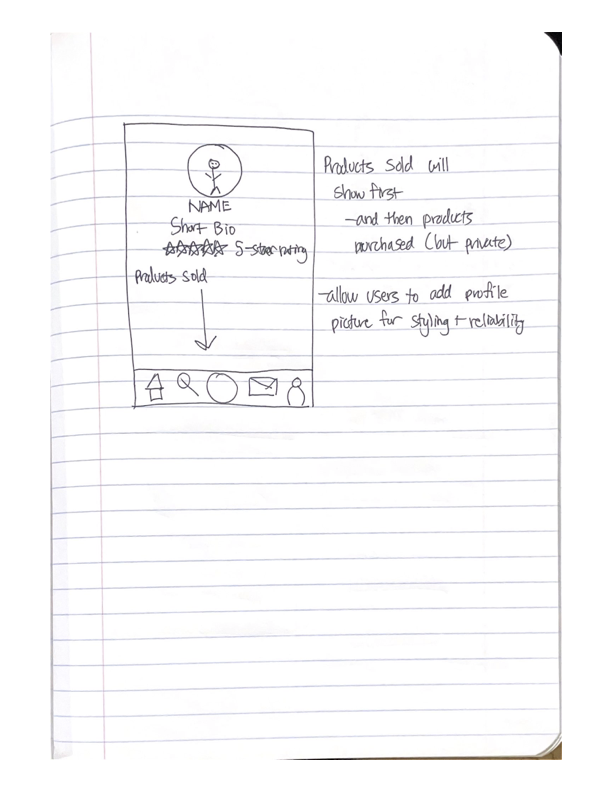 NAME
Short Bio
5-star rating
Products Sold
Products sold will
show first
-and then products
purchased (but private)
-allow users to add profile
picture for styling + reliability